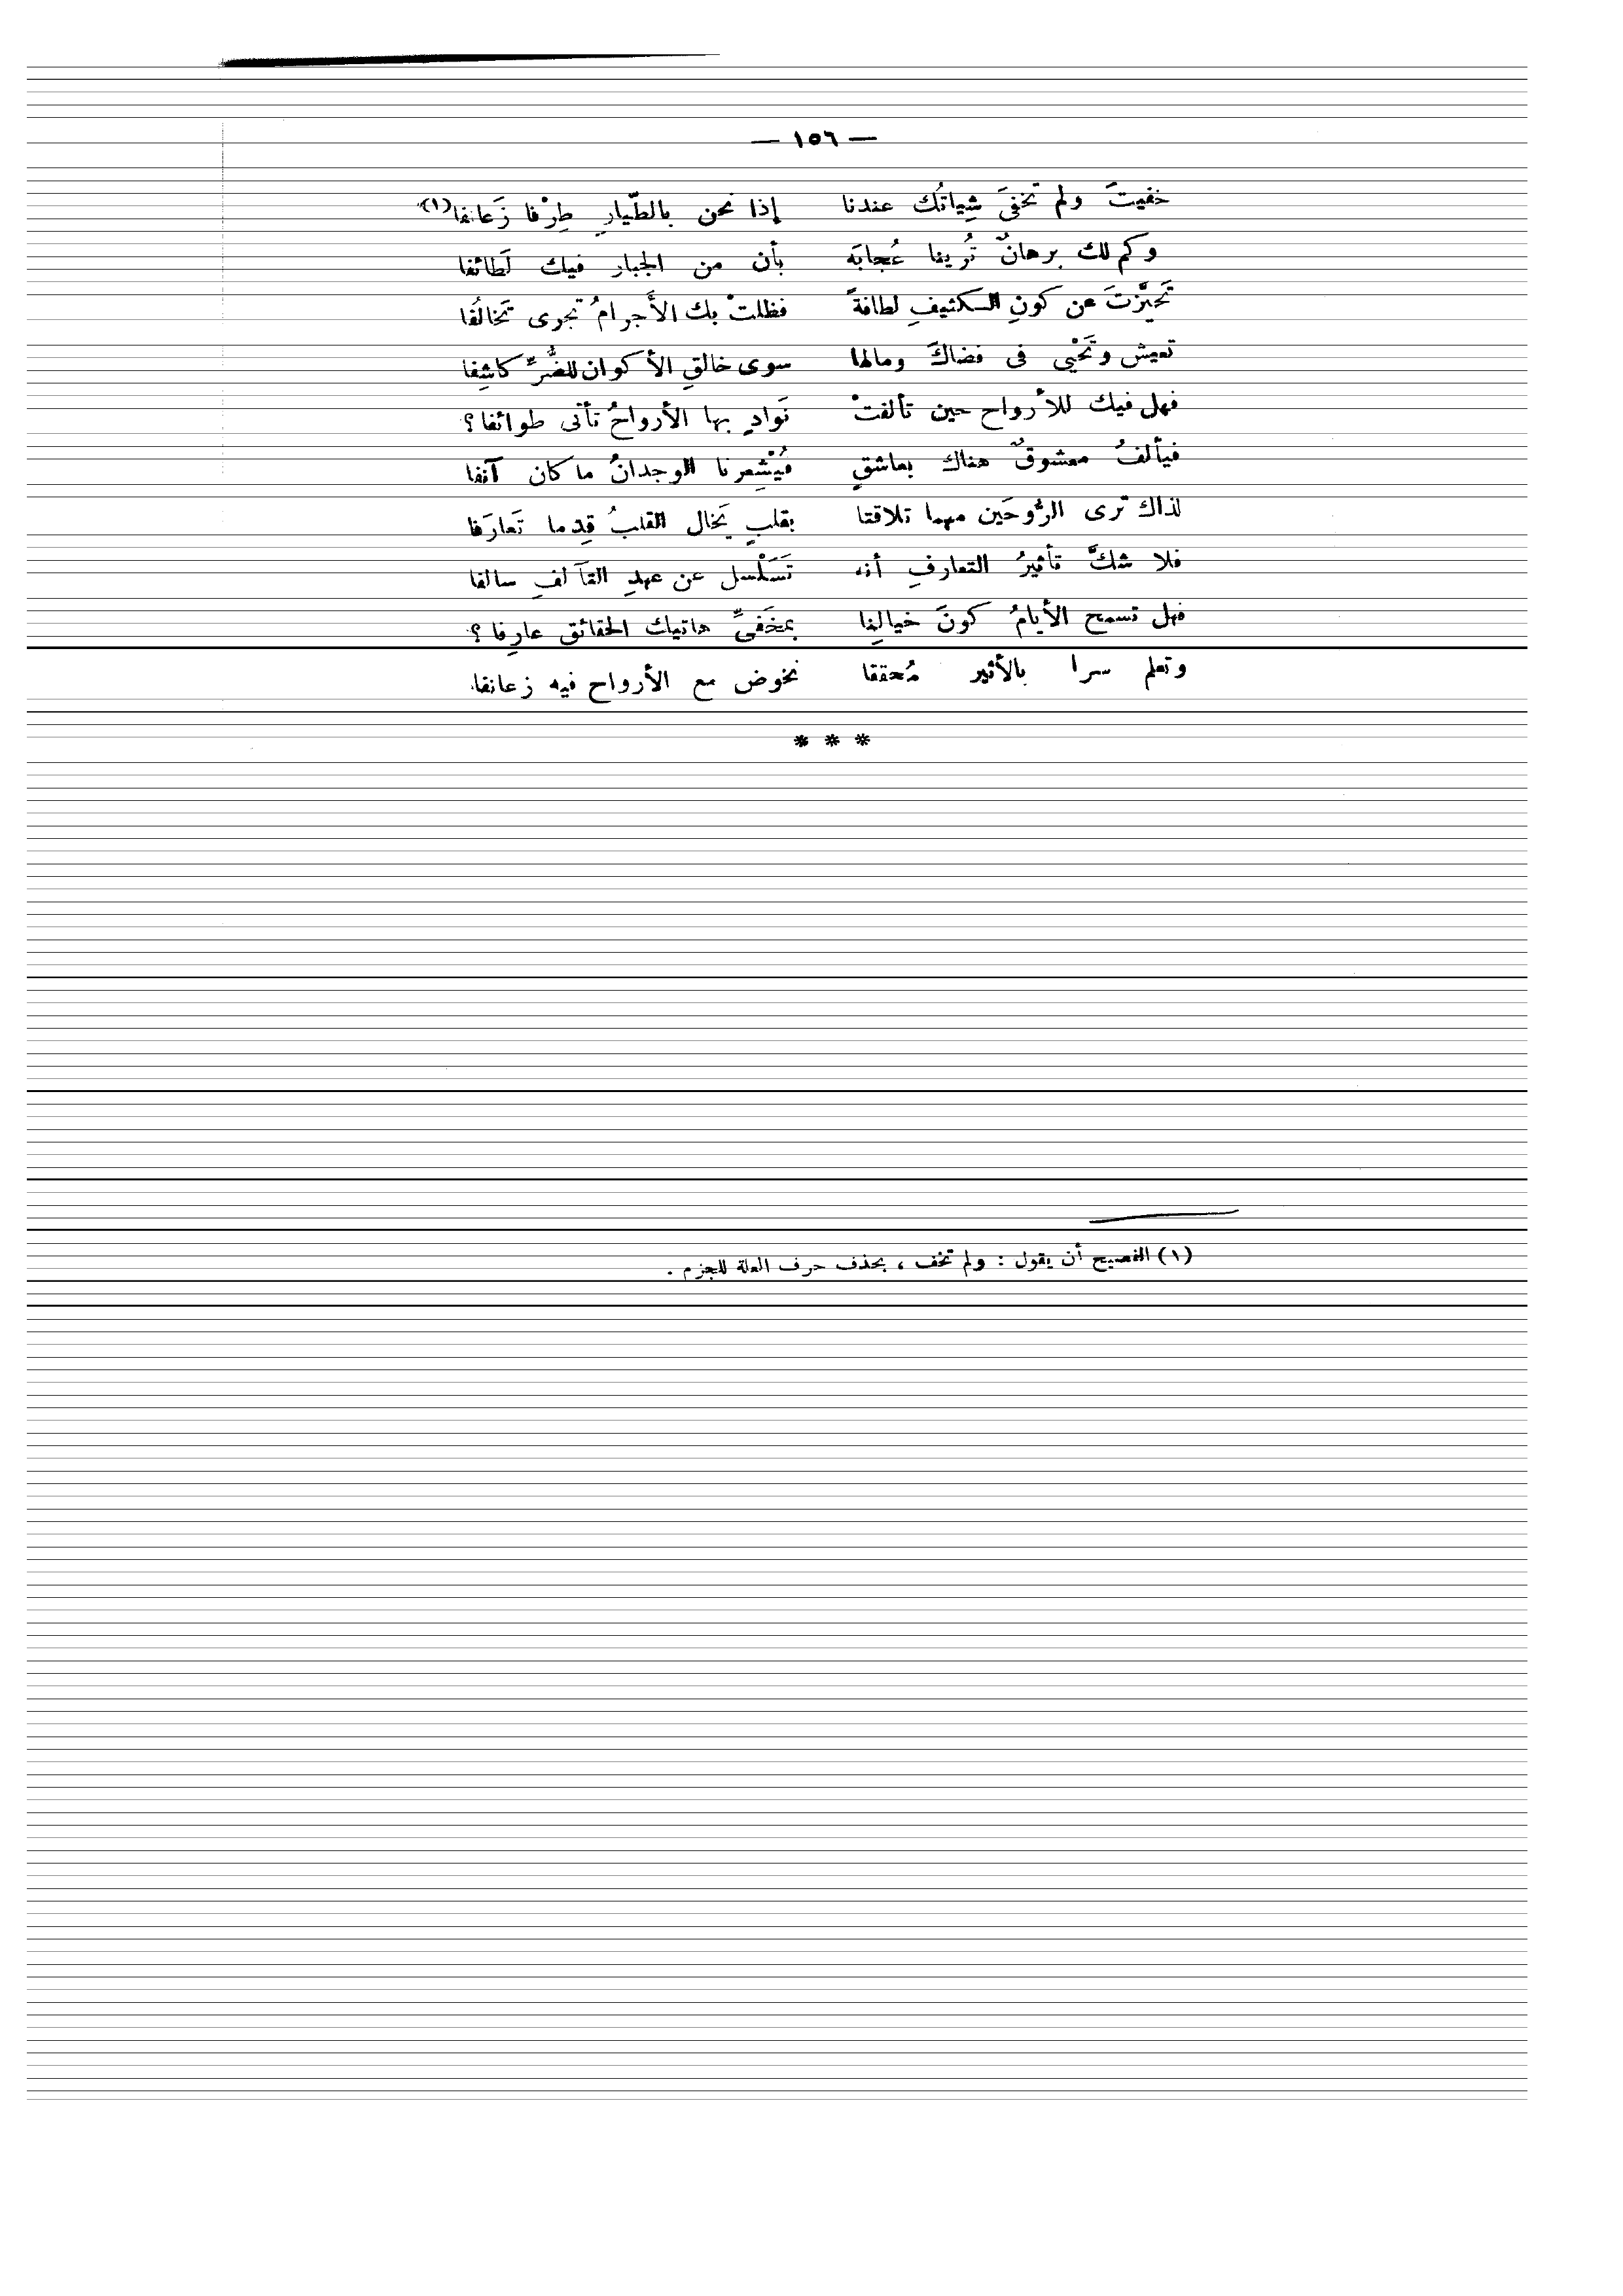 — ١٥٦ —
خفيتَ ولم تخفىَ شِياتُك عندنا إذا نحن بالطّيارِ طِرْفا زَعانفا(١)
وكم لك برهانٌ تُرينا عُجابَه بأن من الجبار فيك لَطائفا
تَحيَّزْتَ عن كونِ الكثيفِ لطافةً فظلتْ بك الأَجرامُ تجرى تَخالُفا
تعيش وتَحْيى فى فضاكَ ومالها سوى خالقِ الأكوان للضُّرِّ كاشِفا
فهل فيك للأرواح حين تألفتْ نَوادٍ بها الأرواحُ تأتى طوائفا؟
فيألفُ معشوقٌ هناك بعاشقٍ فيُشْعِرنا الوجدانُ ما كان آنفا
لذاك ترى الرُّوحَين مهما تلاقتا بقلبٍ يَخال القلبُ قِدما تَعارَفا
فلا شكَّ تأثيرُ التعارفِ أنه تَسَلْسل عن عهدِ التآلفِ سالفا
فهل تسمح الأيامُ كونَ خيالِنا بمخفىِّ هاتيك الحقائق عارِفا؟
وتعلم سرا بالأثير مُحققا نخوض مع الأرواح فيه زعانفا
* * *
(١) الفصيح أن يقول : ولم تخف ، بحذف حرف العلة للجزم .